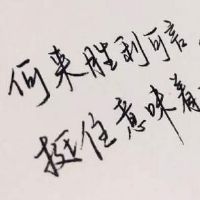 何来胜利可言
挺住意味着